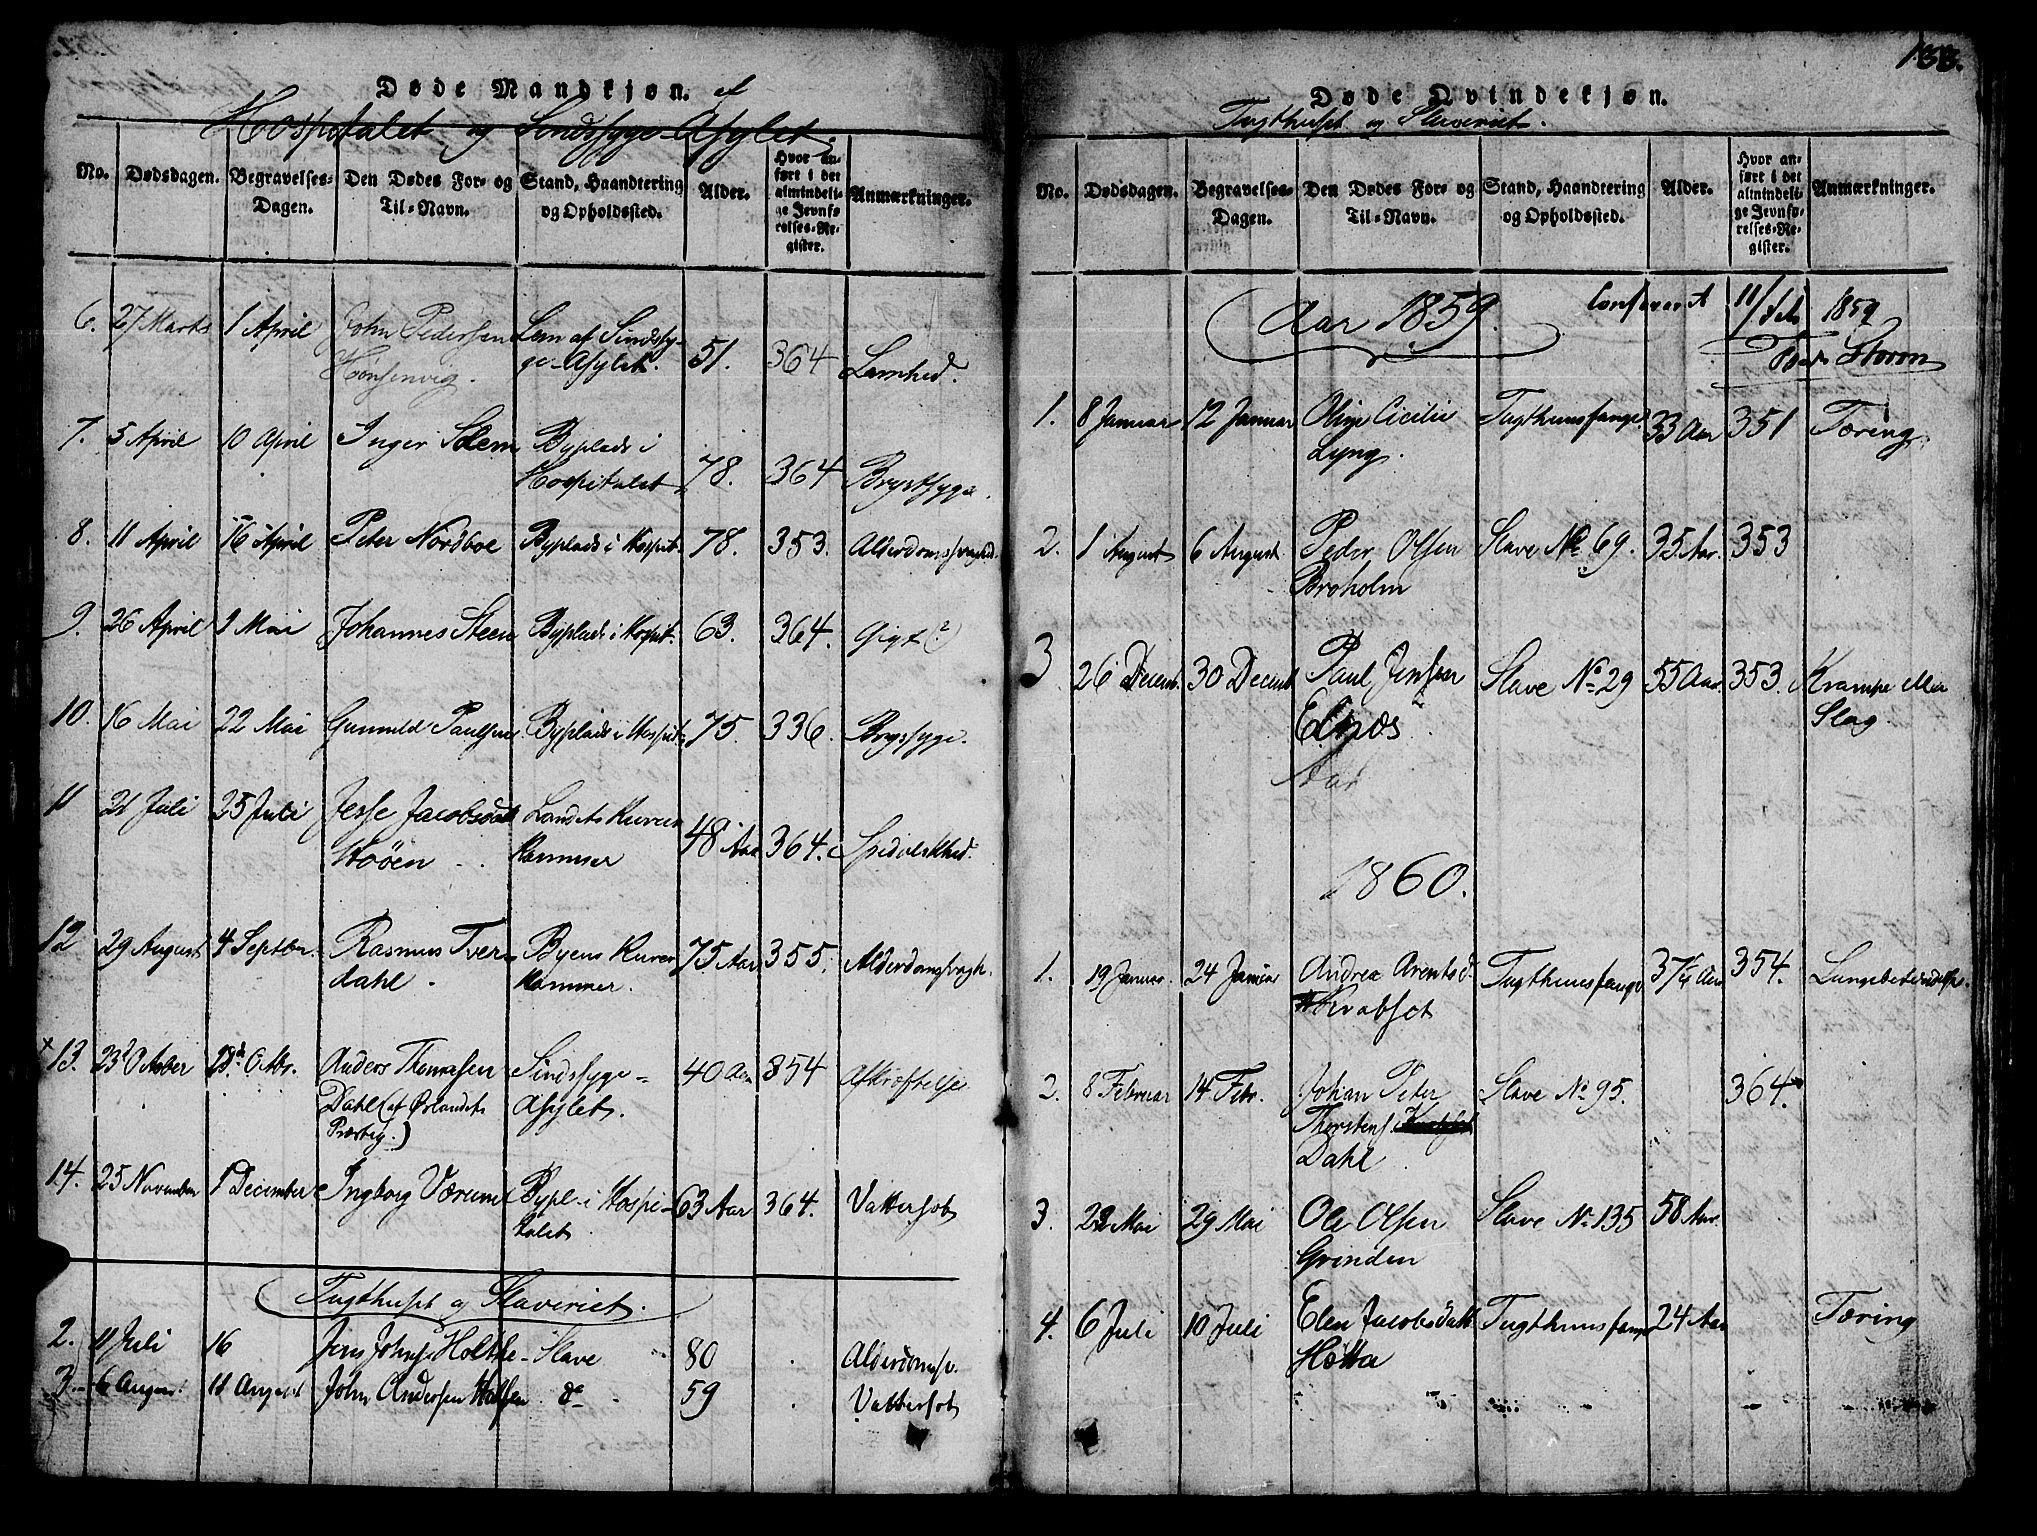 Døde Mandkjøn. af
Hospitalet og Sindssyge-Asylet.
No. Dødsdagen. Begravelses-Dagen. Den Dødes For- og Til-Navn. Stand, Haandtering og Opholdssted. Alder. Hvor anført i det almindelige Jevnførelses-Register. Anmærkninger.
6. 27 Marts 1 April John Pedersen Lem af Sindssy-
ge-Asylet. 51. 364 Lamhed.
7. 5 April 10 April Inger Sclem Byplads i
Hospitalet 78. 364 Brystsyge.
8. 11 April 16 April Peter Nordboe Byplads i Hospit. 78. 353. Alderdomssvaghed.
9. 26 April 2 Mai Johannes Steen Byplads i Hospit. 63. 364. Gigt (?)
10. 16 Mai 22 Mai Gunnild Paulsen Byplads i Hospit. 75. 336. Brystsyge.
11 21 Juli 25 Juli Jesse Jacobsdatt Landets Kureer
Høøen Kammer 48 Aar 364. Spedalskhed.
12 29 August 4 Septbr. Rasmus Tver- Byens Kureer
dahl. Kammer. 75 Aar 355. Alderdomssvagh.
13. 23d October 28d Octbr. Anders Thomasen Sindssyge- 40 Aar 354 Afkræftelse
Dahl (af Ørlandets Asylet.
Præsteg.)
14. 25 November 1 December Ingborg Værum Bypl. i Hospi- 63 Aar 364. Vattersot
talet
Tugthuset og Slaveriet.
2. 11 Juli 16 Jens Johns. Holthe Slave 80 Alderdomssv.
3. 6 August 11 August John Andersen do 59 Vattersot
133.
Døde Qvindekjøn.
Tugthuset og Slaveriet.
No. Dødsdagen. Begravelses-Dagen. Den Dødes For- og Til-Navn. Stand, Haandtering og Opholdssted. Alder. Hvor anført i det almindelige Jevnførelses-Register. Anmærkninger.
Aar 1859. Confereret 11/ Feb 1859
Storm
1. 8 Januar 12 Januar Oline Cicilie Tugthuusfange 33 Aar 351 Tæring
Lyng.
2. 1 August 6 August Peder Olsen Slave No 69. 35 Aar. 353
Broholm
3 26 Decemb. 30 Decemb Paul Jensen Slave No 29 55 Aar. 353. Krampe eller
Elnæs Slag.
Aar
1860.
1. 19 Januar. 24 Januar Andrea Arentsd. Tugthuusfange 37 1/4 Aar 354. Lungebetændelse.
2. 8 Februar 14 Febr. Johan Peter Slave No 95. 364.
Thorstens.
Dahl
3. 23 Mai 29 Mai Ole Olsen Slave No 135 58 Aar.
Grinden
4. 6 Juli 10 Juli Elen Jacobsdatt Tugthuusfange 24 Aar Tæring
Høtta